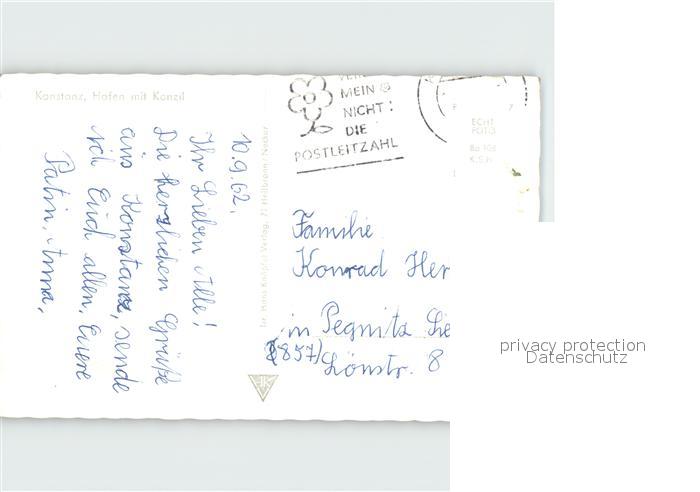 Konstanz, Hafen mit Konzil
10.9.62.
Ihr Lieben Alle!
Die herzlichen Grüße
aus Konstanz, sende
ich Euch allen, Euere
Patin, Anna,
71 Heilbronn/Neckar
MEIN
NICHT:
DIE
POSTLEITZAHL
ECHT
FOTO
Familie
Konrad Her
in Pegnitz Lie
(857) Lönstr. 8
privacy protection
Datenschutz